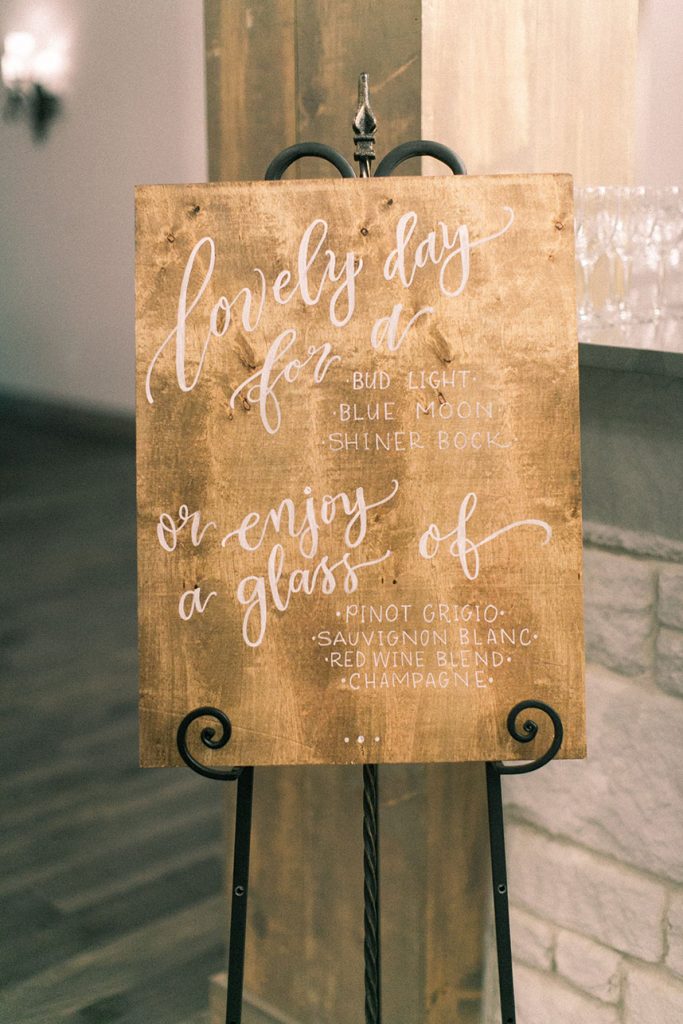 lovely day
for a
·BUD LIGHT·
·BLUE MOON
·SHINER BOCK·
or enjoy
a glass of
·PINOT GRIGIO·
·SAUVIGNON BLANC·
·RED WINE BLEND·
·CHAMPAGNE·
...